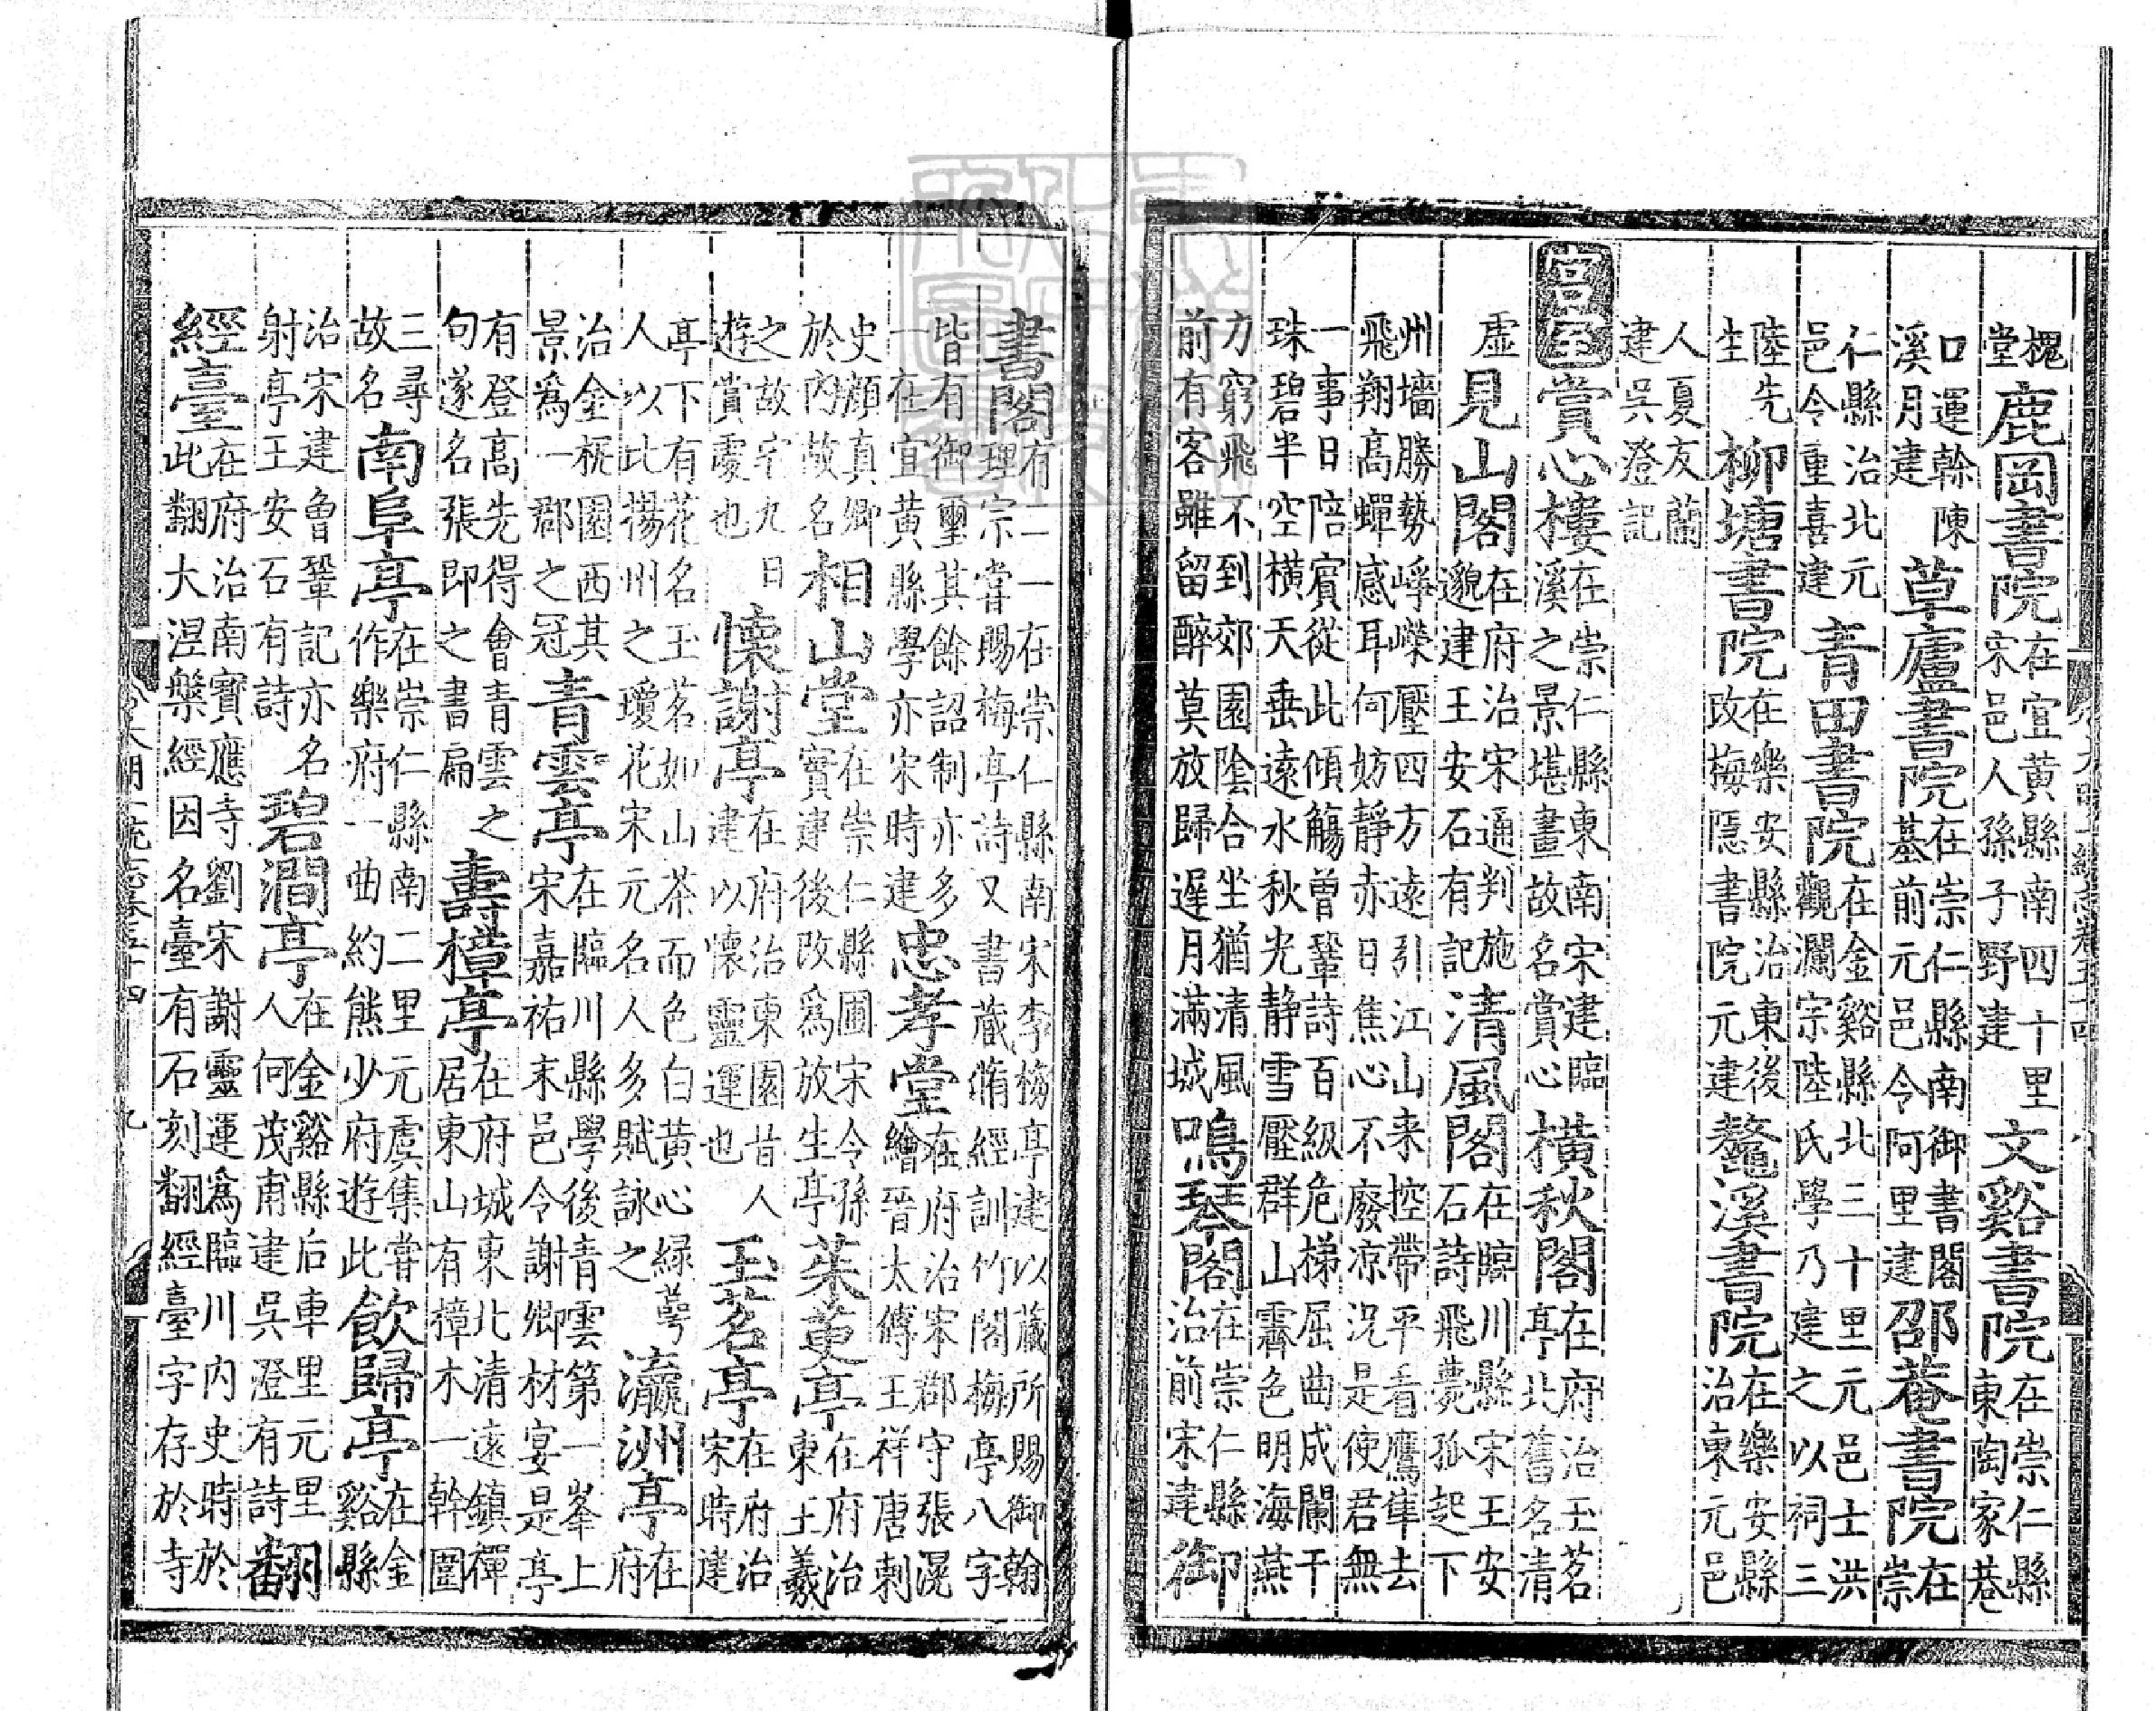 槐堂鹿岡書院在宜黄縣南四十里宋邑人孫子野建文谿書院在崇仁縣東陶家巷
口運幹陳溪月建草廬書院在崇仁縣南御書閣基前元邑令阿里建邵菴書院在崇
仁縣治北元邑令重喜建青田書院在金谿縣北三十里元邑士洪觀瀾宗陸氏學乃建之以祠三
陸先生柳塘書院在樂安縣治東後改梅隱書院元建鰲溪書院在樂安縣治東元邑
人夏友蘭建吳澄記
宮室賞心樓在崇仁縣東南宋建臨溪之景堪畫故名賞心橫秋閣在府治玉茗亭北舊名清
虛見山閣在府治宋通判施邈建王安石有記清風閣在臨川縣宋王安石詩飛甍孤起下
州墻勝勢崢嶸壓四方遠引江山来控帶平看鷹隼去飛翔高蟬感耳何妨靜赤日焦心不廢凉况是使君無
一事日陪賓從此傾觴曾鞏詩百級危梯屈曲成闌干珠碧半空橫天垂遠水秋光静雪壓群山霽色明海燕
方窮飛不到郊園陰合坐猶清風前有客雖留醉莫放歸遲月滿城鳴琴閣在崇仁縣治前宋建御
書閣有二一在崇仁縣南宋李梅亭建以藏所賜御翰理宗甞賜梅亭詩又書藏脩經訓竹閣梅亭八字
皆有御璽其餘詔制亦多一在宜黄縣學亦宋時建忠孝堂在府治宋郡守張滉繪晉太傅王祥唐刺
史顔真卿於內故名相山堂在崇仁縣圃宋令孫實建後改為放生亭茱萸亭在府治東王羲
之故宅九日遊賞處也懷謝亭在府治東園昔人建以懷靈運也玉茗亭在府治宋時建
亭下有花名玉茗如山茶而色白黄心緑萼人以此揚州之瓊花宋元名人多賦詠之瀛洲亭在府
治金柅園西其景為一郡之冠青雲亭在臨川縣學後青雲第一峯上宋嘉祐末邑令謝卿材宴是亭
有登高先得會青雲之句遂名張即之書扁壽樟亭在府城東北清遠鎮禪居東山有樟木一幹圍
三尋故名南阜亭在崇仁縣南二里元虞集甞作樂府一曲約熊少府遊此飲歸亭在金谿縣
治宋建曾鞏記亦名射亭王安石有詩碧澗亭在金谿縣后車里元里人何茂甫建吳澄有詩翻
經臺在府治南寶應寺劉宋謝靈運為臨川內史時於此翻大涅槃經因名臺有石刻翻經臺字存於寺